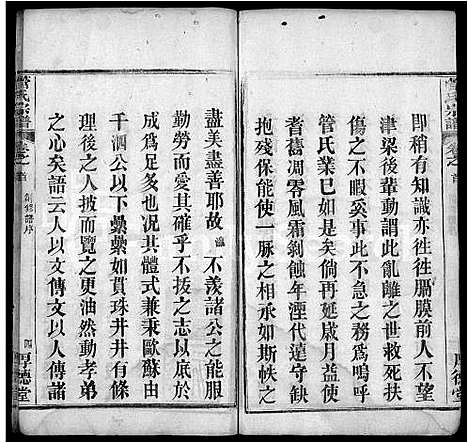 即稍有知識亦徃徃膈膜前人不望
津梁後輩動謂此亂離之世避世
傷之不暇奚事此不急之務爲嗚呼
管氏業已如是矣倘再延歲月益使
耆舊凋零風霜剝蝕年湮代遠守缺
抱殘保能使一脉之相承如斯帙之
盡美盡善耶故瀛不羨諸公之能服
勤勞而愛其確乎不拔之志以底於
成爲足多也其體式兼秉歐蘇由
千泗公以下纍纍如貫珠井井有條
理後之人披而覽之更油然動孝弟
之心矣語云人以文傳文以人傳諸
管氏宗譜
卷之首
創修譜序
四
厚德堂